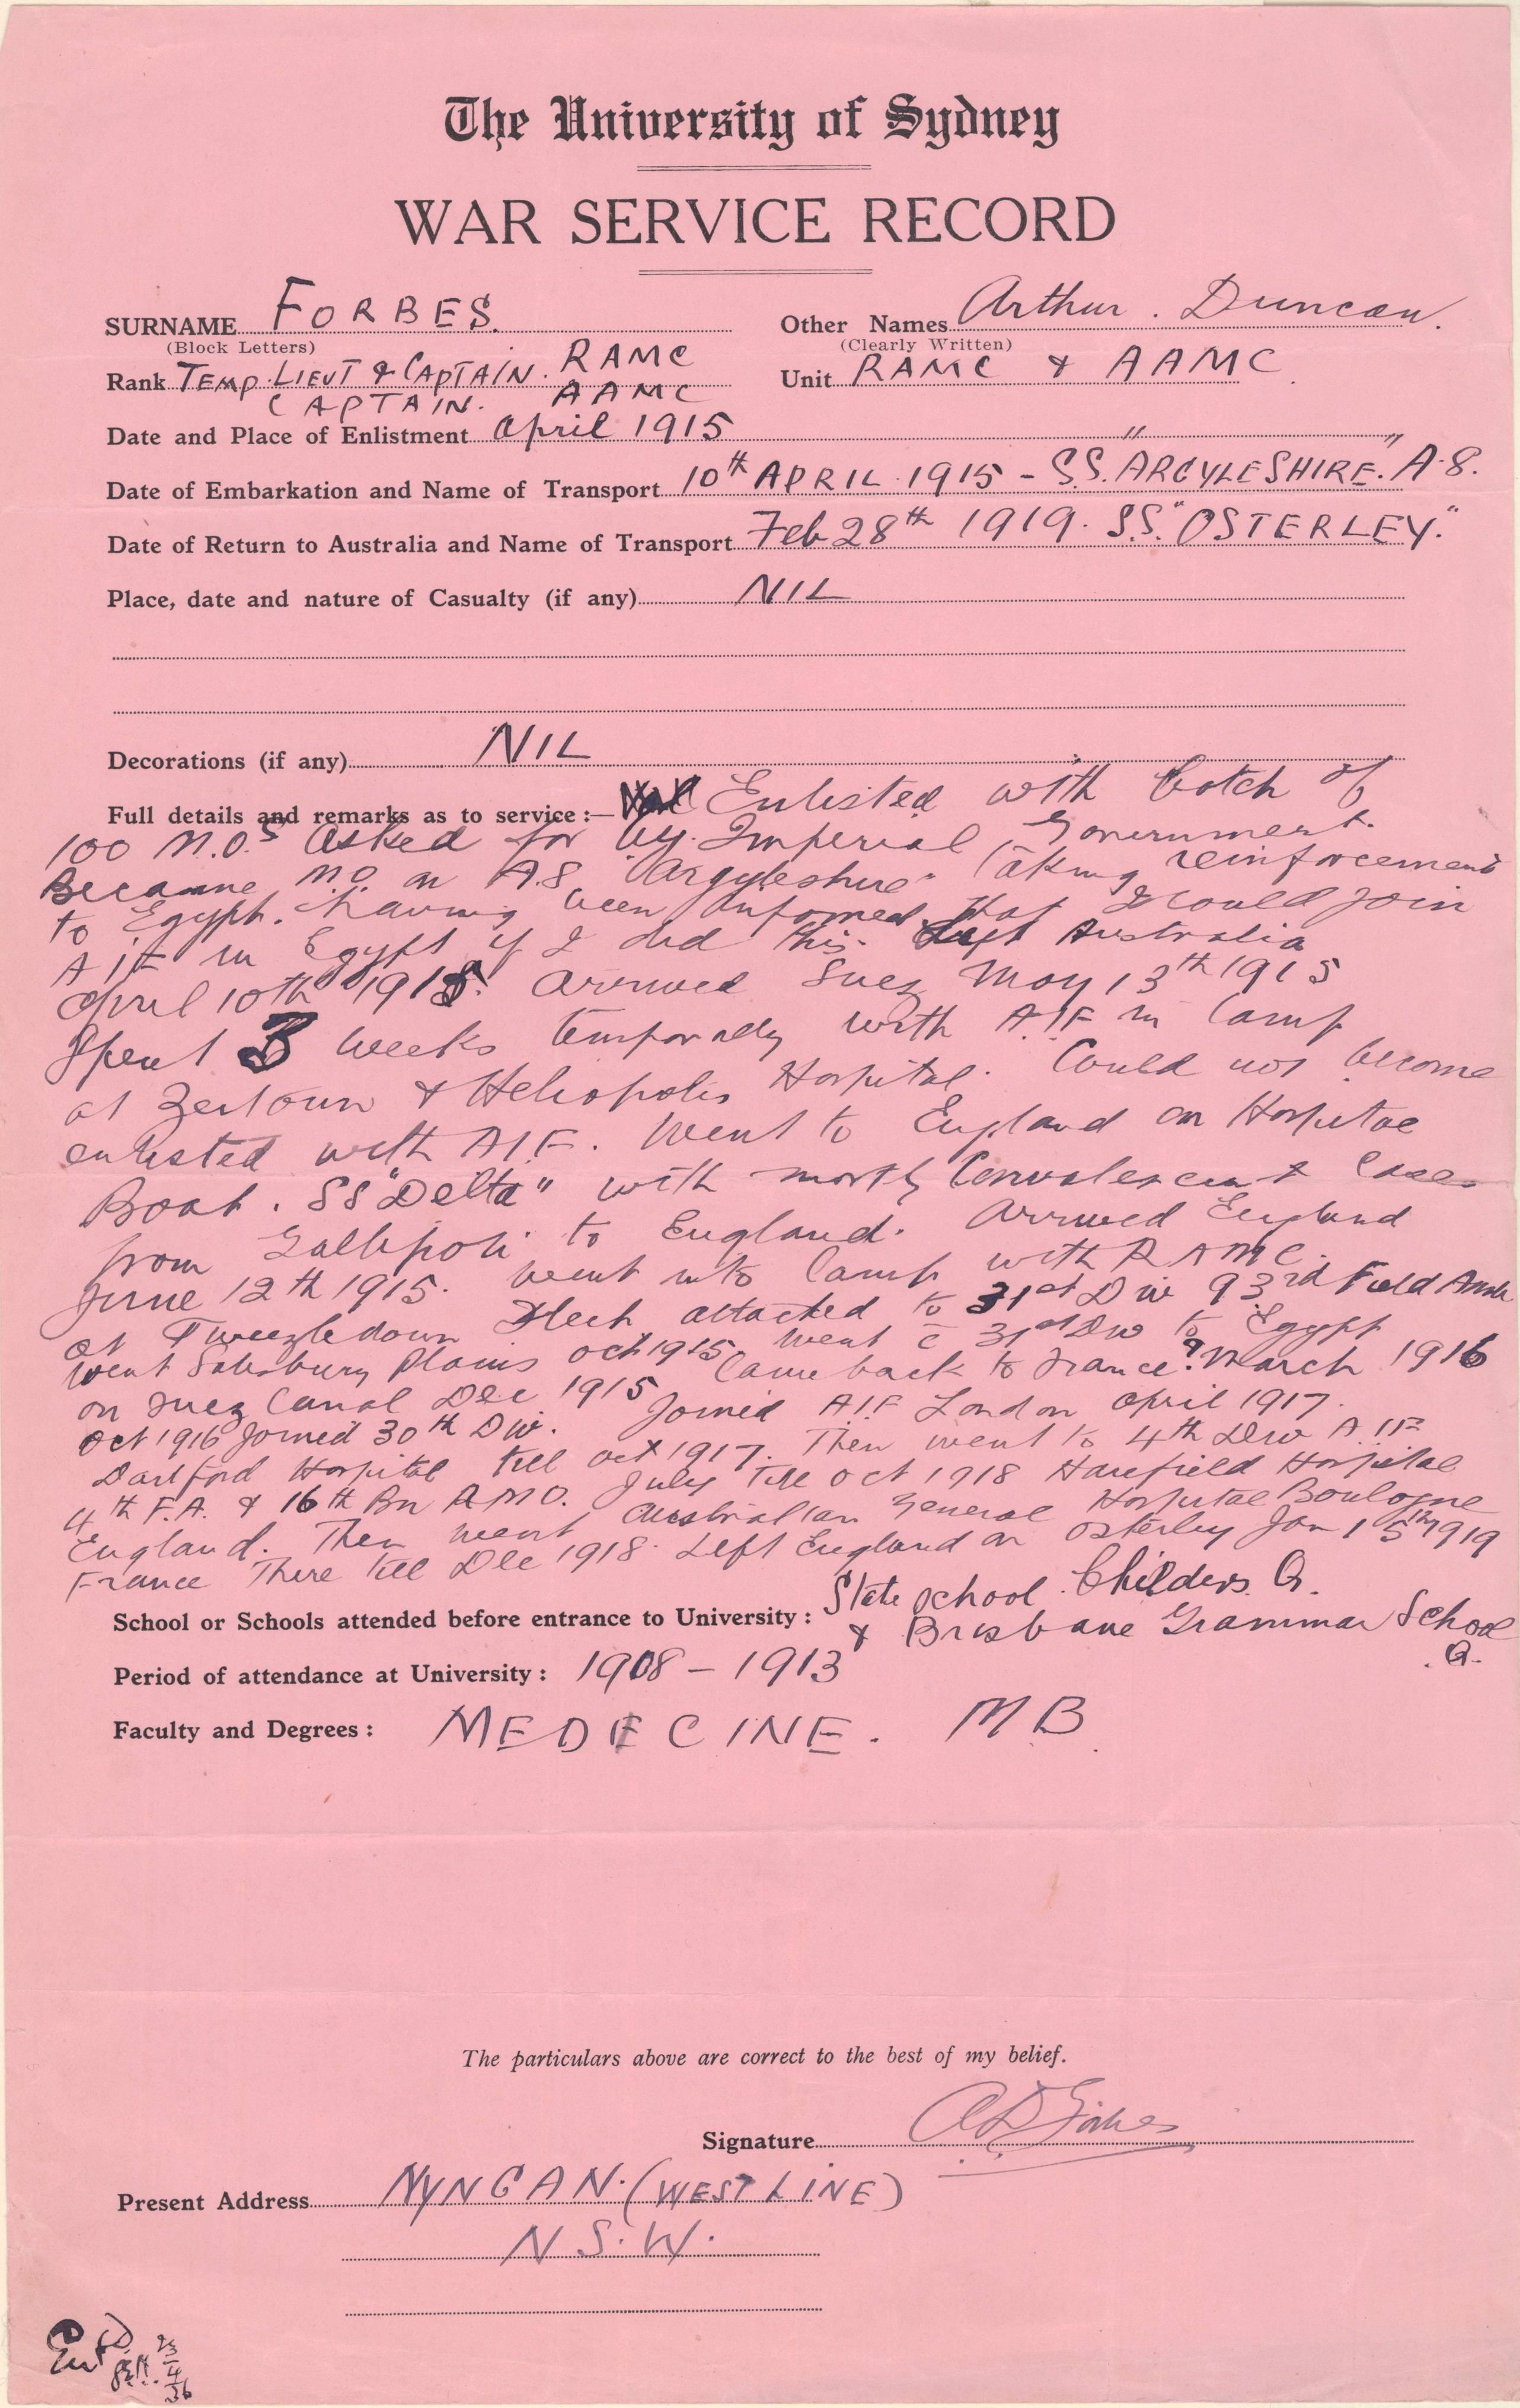 The University of Sydney
WAR SERVICE RECORD
SURNAME FORBES. Other Names Arthur. Duncan.
(Block Letters) (Clearly Written)
Rank TEMP. LIEUT & CAPTAIN. RAMC Unit RAMC & AAMC
CAPTAIN. AAMC
Date and Place of Enlistment April 1915
Date of Embarkation and Name of Transport 10th APRIL 1915 - S.S. "ARGYLESHIRE". A.8.
Date of Return to Australia and Name of Transport Feb 28th 1919. S.S. "OSTERLEY."
Place, date and nature of Casualty (if any) NIL
Decorations (if any) NIL
Full details and remarks as to service:— Enlisted with batch of
100 M.O.s asked for by Imperial Government.
Became M.O. on A.8. "Argyleshire" taking reinforcements
to Egypt. having been informed that I could join
AIF in Egypt if I did this. Left Australia
April 10th 1915. arrived Suez May 13th 1915
Spent 3 weeks temporally with A.I.F in Camp
at Zeitoun & Heliopolis Hospital. Could not become
enlisted with AIF. Went to England on Hospital
Boat. SS "Delta" with mostly Convalescent Cases
from Gallipoli to England. arrived England
June 12th 1915. went into Camp with RAMC.
at Tweezledown Fleet attached to 31st Div 93rd Field Amb
went Salisbury Plains Oct 1915. went c̄ 31st Div to Egypt
on Suez Canal Dec 1915 Came back to France? March 1916
Oct 1916 Joined 30th Div. Joined A.I.F London April 1917.
Dartford Hospital till Oct 1917. Then went to 4th Div A.I.F
4th F.A. & 16th Bn RMO. July till Oct 1918 Harefield Hospital
England. Then went Australian General Hospital Boulogne
France There till Dec 1918. Left England on Osterley Jan 15th 1919
School or Schools attended before entrance to University: State School. Childers. Q.
& Brisbane Grammar School
.Q.
Period of attendance at University: 1908 - 1913
Faculty and Degrees: MEDECINE. MB.
The particulars above are correct to the best of my belief.
Signature A D Forbes
Present Address NYNGAN. (WEST LINE)
N.S.W.
Ent'd
23/4/36